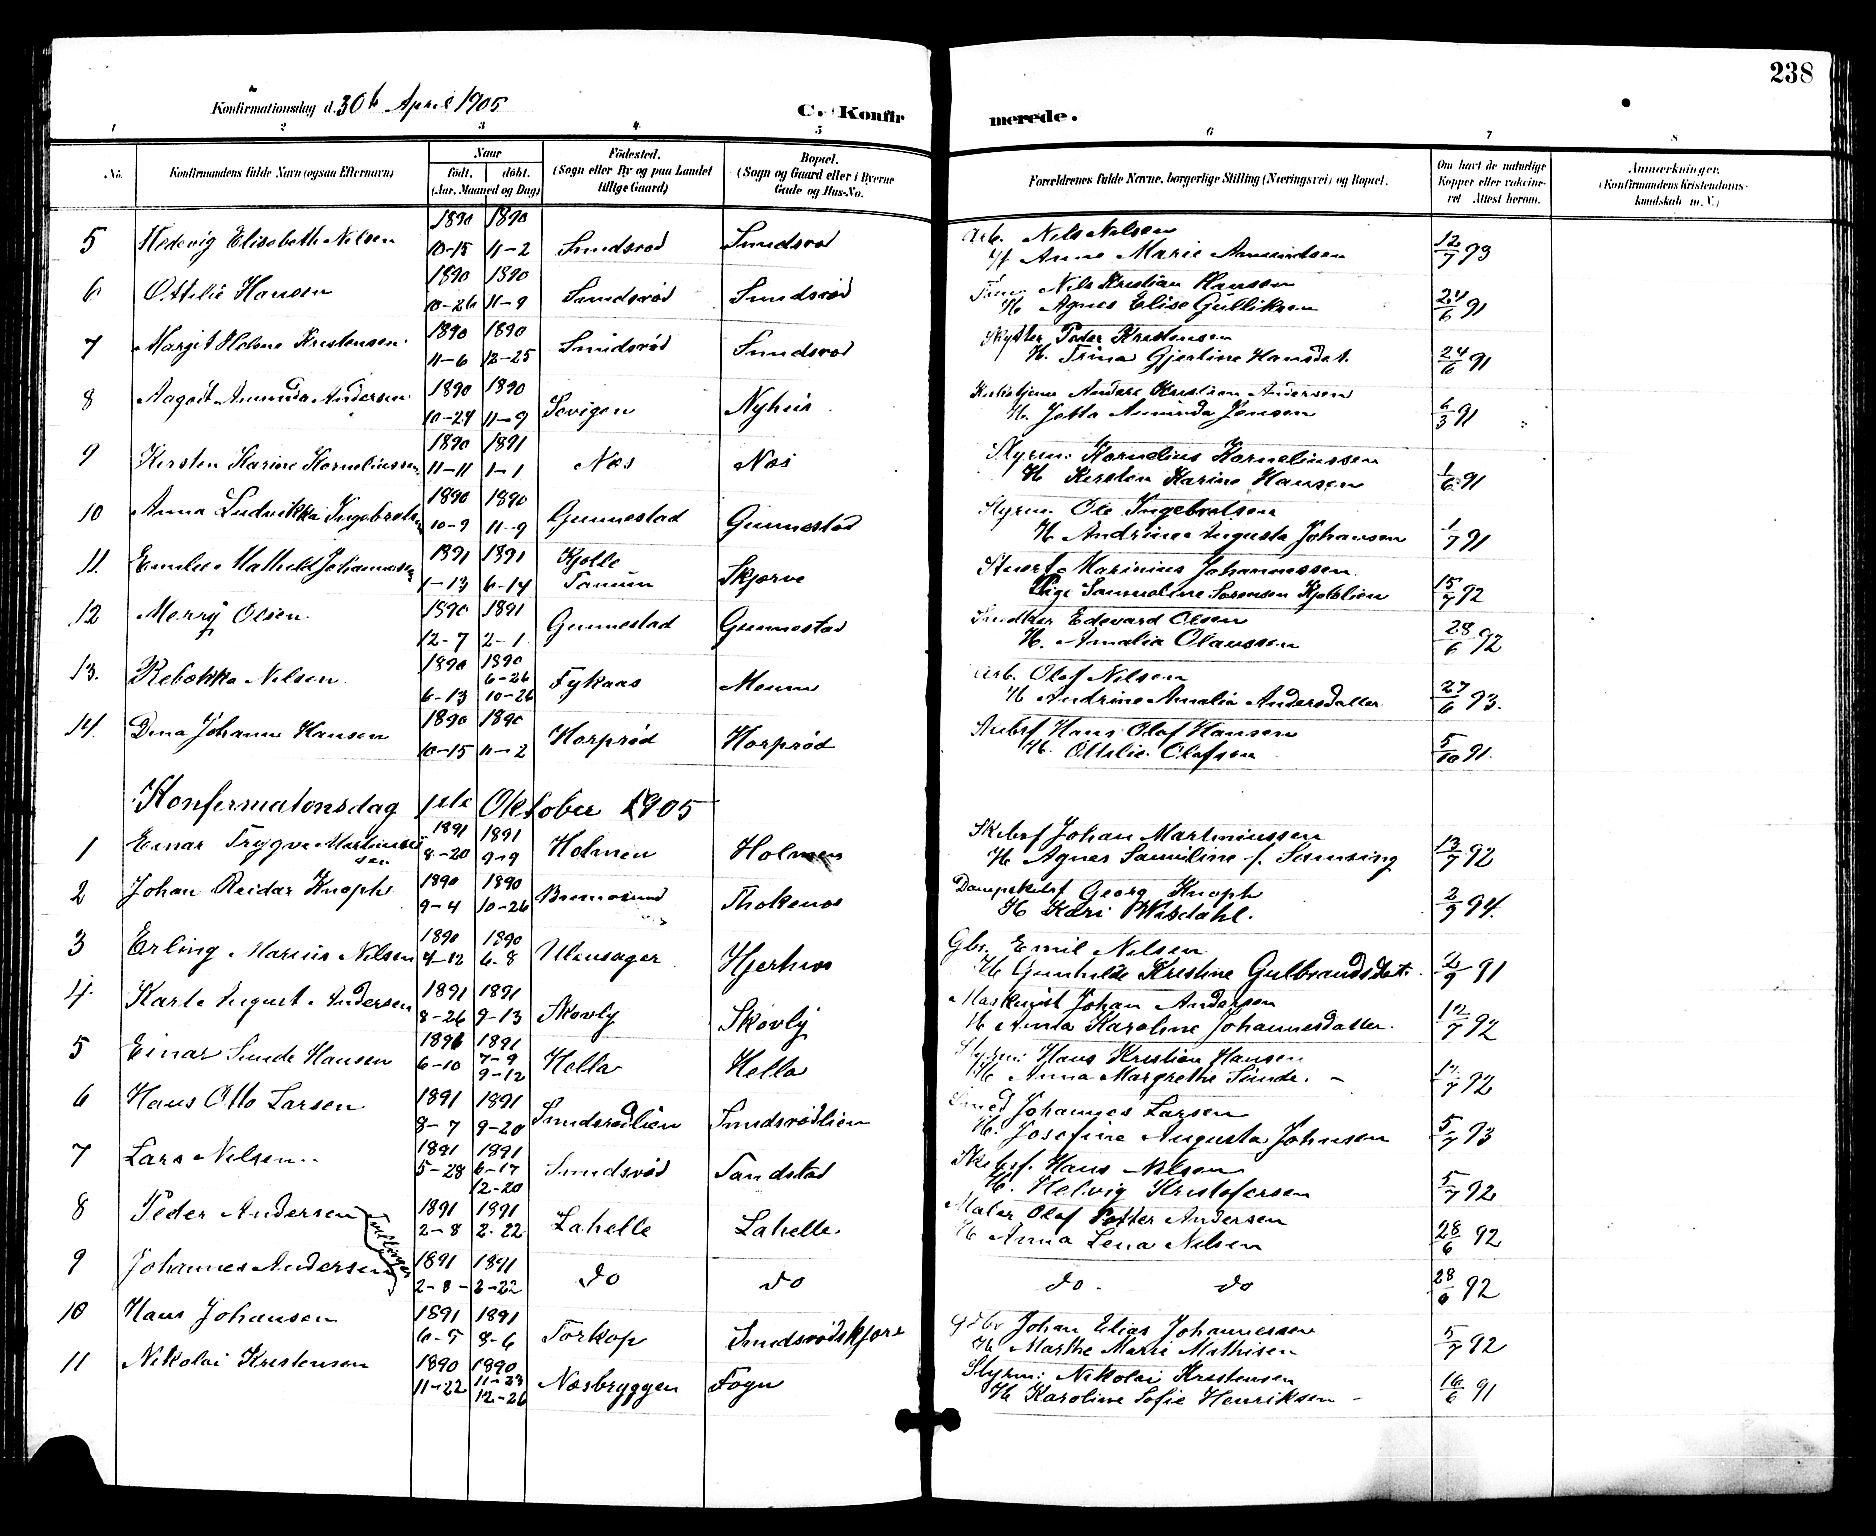 238
Konfirmationsdag d. 30te April 1905
C. Konfirmerede.
1 2 3 4 5 6 7 8
No. Konfirmandens fulde Navn (ogsaa Efternavn) Naar født. døbt. (Aar, Maaned og Dag) Fødested. (Sogn eller By og paa Landet tillige Gaard) Bopæl. (Sogn og Gaard eller i Byerne Gade og Hus-No. Forældrenes fulde Navne, borgerlige Stilling (Næringsvei) og Bopæl. Om havt de naturlige Kopper eller vakcineret Attest herom. Anmærkninger. (Konfirmandens Kristendomskundskab m. V.)
5 Hedevig Elisabeth Nilsen 1890 10-15 1890 11-2 Smidsrød Smidsrød Arb. Nils Nilsen H Anne Marie Amundsen 12/7 93
6 Ottilie Hansen 1890 10-26 1890 11-9 Smidsrød Smidsrød Nils Kristian Hansen H. Agnes Elise Gulliksen 24/6 91
7 Margit Helene Kristensen 1890 11-6 1890 12-25 Smidsrød Smidsrød Skytter Peder Kristensen H. Trina Gjertine Hansdat. 24/6 91
8 Aagot Amunda Andersen 1890 10-24 1890 11-9 Sevigen Nyhus Anders Kristian Andersen H. Jotta Amunda Jensen 6/3 91
9 Kirsten Karine Korneliussen 1890 11-11 1891 1-1 Næs Næs Styrm. Kornelius Korneliussen H Kirsten Karine Hansen 1/6 91
10 Anna Ludvikka Ingebretsen 1890 10-9 1890 11-9 Gunnestad Gunnestad Styrm. Ole Ingebretsen H Andrine Augusta Johansen 1/7 91
11. Emilie Mathilde Johannessen 1891 1-13 1891 6-14 Kjølle Tømum Skjerve Stuert Marinius Johannessen Pige Samueline Sørensen Kjølslien 15/7 92
12 Merry Olsen 1890 12-7 1891 2-1 Gunnestad Gunnestad Edevard Olsen H. Amalia Olaussen 28/6 92
13. Rebekka Nilsen 1890 6-13 1890 6-26 10-26 Fykaas Meum Arb. Olaf Nilsen H Andrine Amalia Andersdatter 27/6 93.
14. Dina Johanne Hansen 1890 10-15 1890 11-2 Horprød Horprød Hans Olaf Hansen H. Ottilie Olafsen 5/10 91.
Konfermatonsdag 1ste Oktober 1905
1 Einar Trygve Martiniussen 1891 8-20 1891 9-9 Holmen Holmen Skibsf Johan Martiniussen H Agnes Samiline f. Samsing 13/7 92
2 Johan Reidar Knoph 1890 9-4 1890 10-26 Thokenes Dampskibsf Georg Knoph H Kari Wisdahl. 2/9 94.
3 Erling Marius Nilsen 1890 4-12 1890 6-8 Ulensager Hjerhus Gbr. Emil Nilsen H Gunhilde Kristine Gulbrandsdat. 2/9 91
4. Karl August Andersen 1891 8-26 1891 9-13 Skovly Skovly Maskinist Johan Andersen H Anna Karoline Johannesdatter. 12/7 92
5 Einar Sunde Hansen 1891 6-10 1891 7-9 9-12 Hella Hella Styrm. Hans Kristian Hansen H Anna Margrethe Sunde. 92
6 Hans Otto Larsen 1891 8-7 1891 9-20 Smidsrødlien Smidsrødlien Smed Johannes Larsen H. Josefine Augusta Johnsen 5/7 93
7 Lars Nilsen 1891 5-28 1891 6-17 12-20 Smidsrød Sandstad Skibsf. Hans Nilsen H. Helvig Kristofersen 5/7 92
8 Peder Andersen Tvillinger 1891 2-8 1891 2-22 Lahelle Lahelle Maler Olaf Petter Andersen H Anna Lena Nilsen 28/6 92
9 Johannes Andersen 1891 2-8 1891 2-22 do do do do 28/6 92
10 Hans Johansen 1891 6-5 1891 8-6 Torkop Smidsrødskjære Gdbr Johan Elias Johannessen H Marthe Marie Mathisen 5/7 92
11 Nikolai Kristensen 1890 11-22 1890 11-23 12-26 Næsbryggen Føyn Styrm: Nikolai Kristensen H Karoline Sofie Henriksen 16/6 91